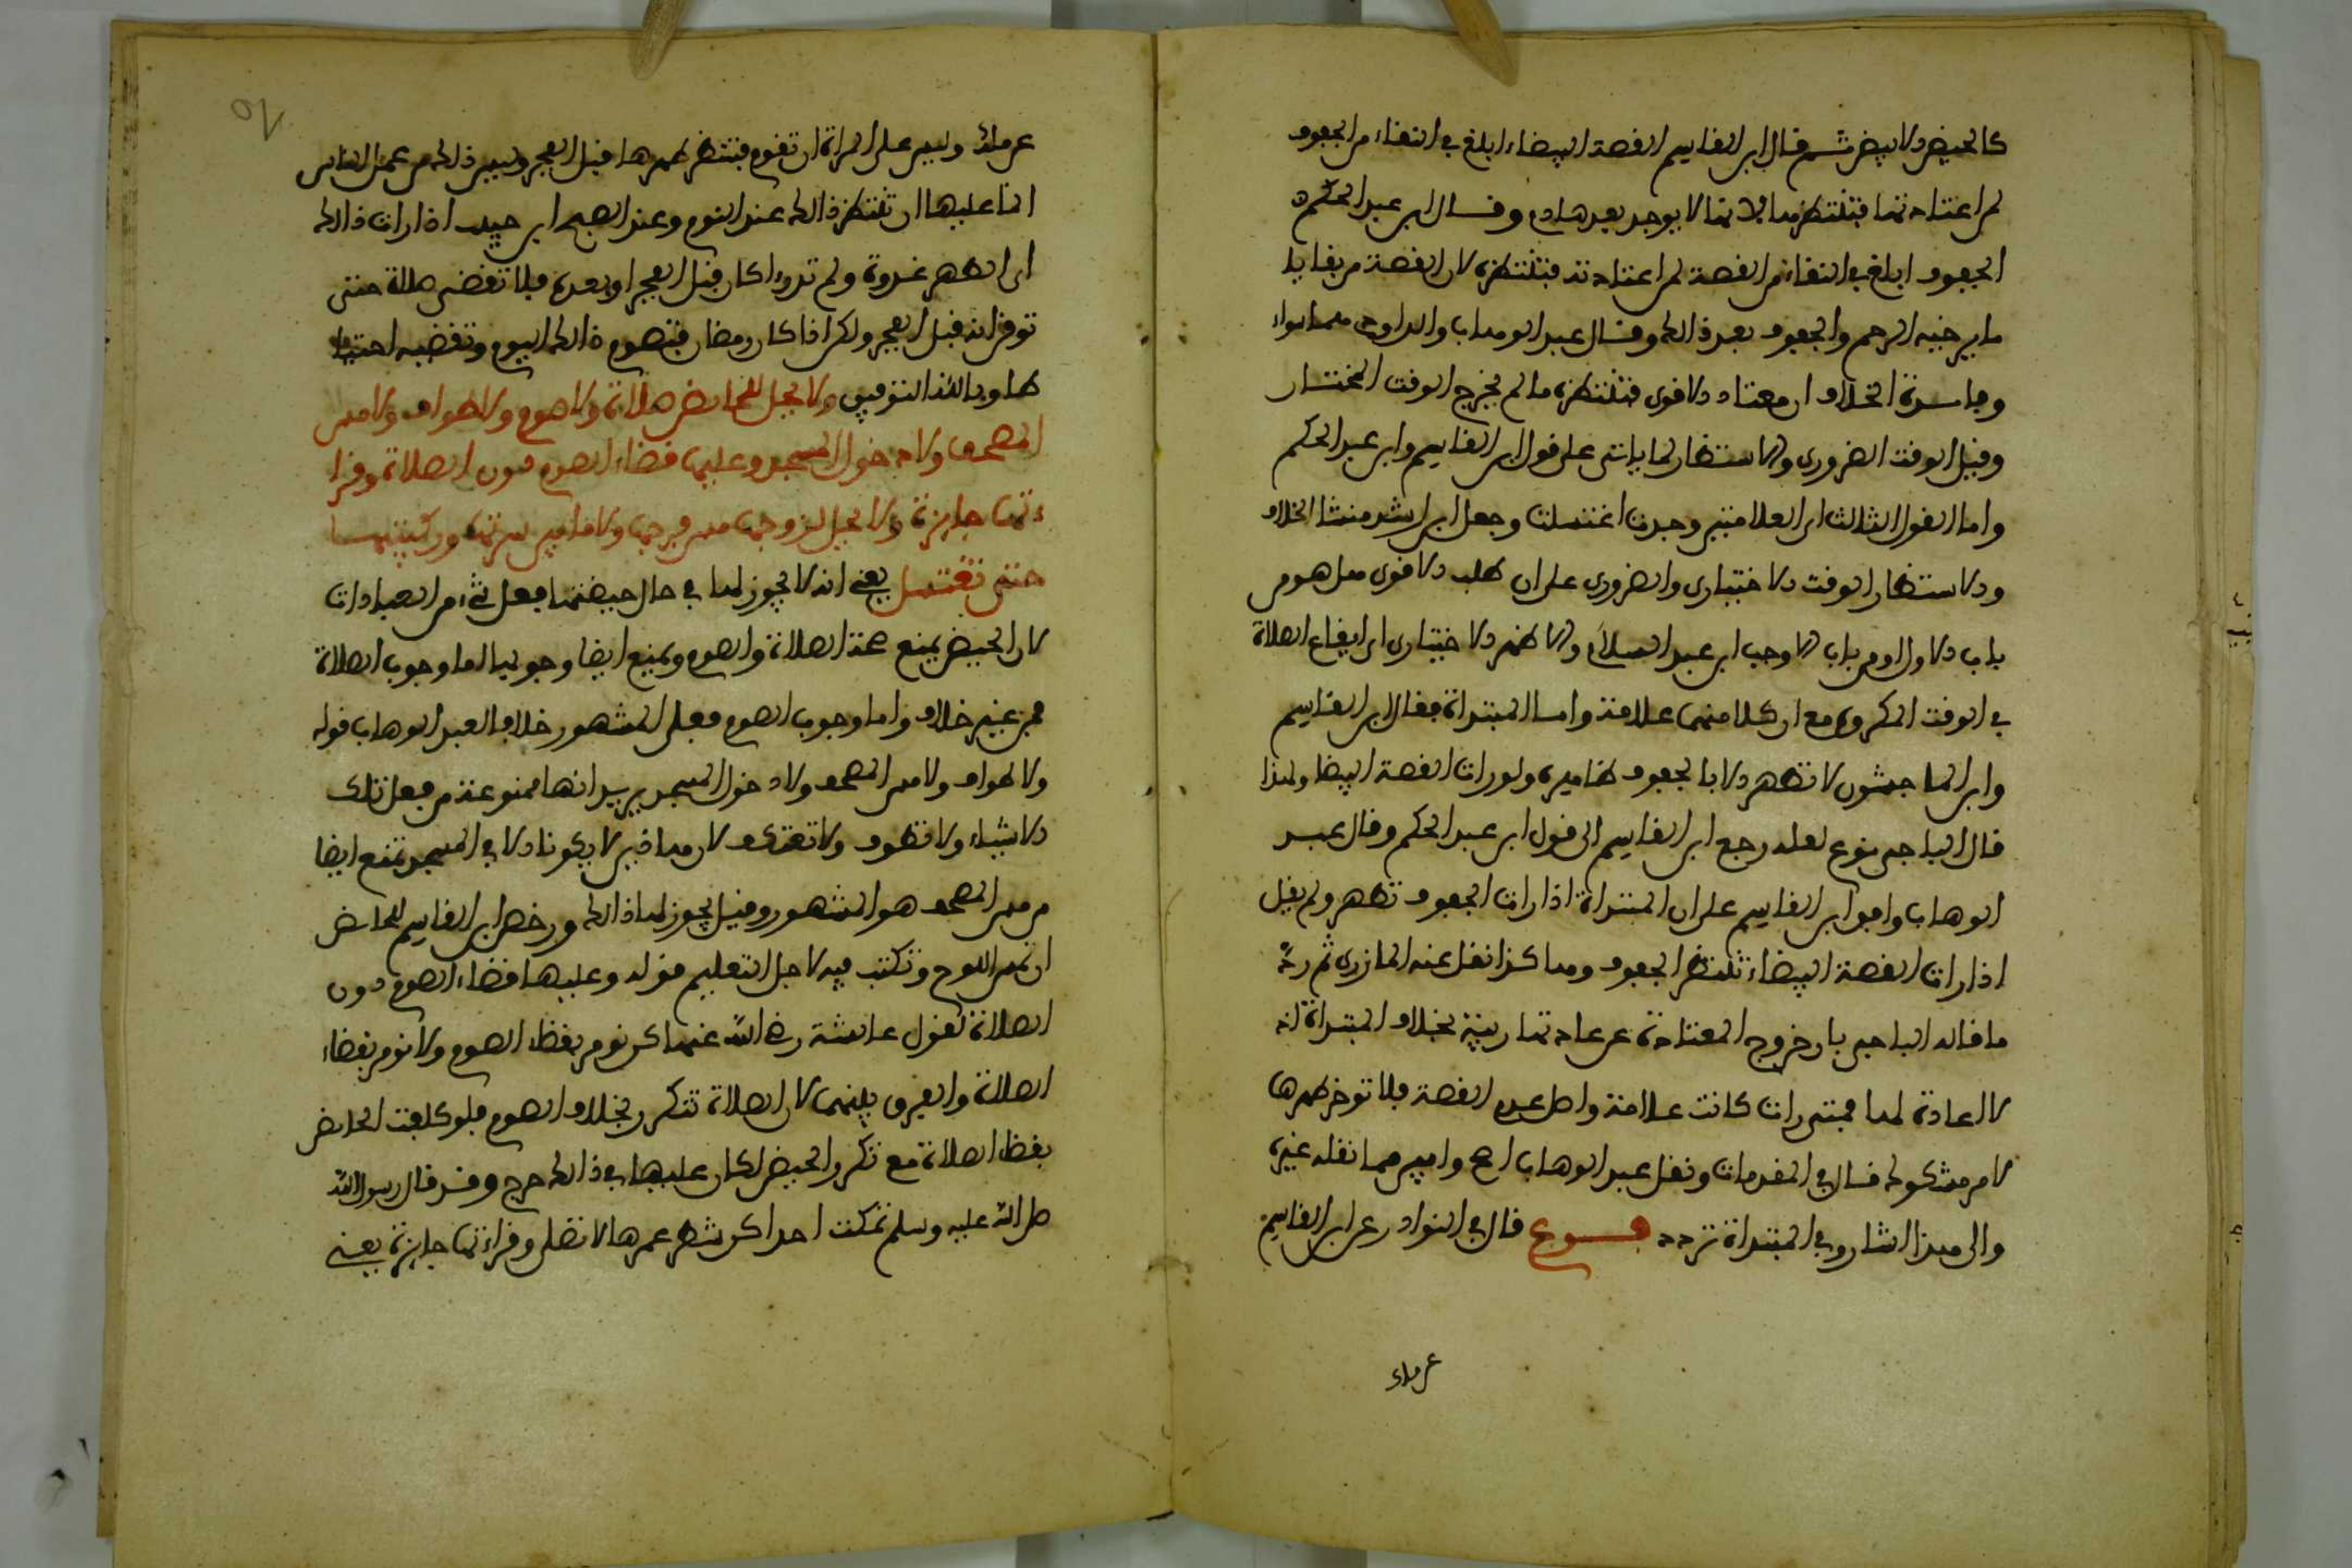 كالحيض والابيض ثم قال ابن القاسم القصة البيضاء ابلغ في النقاء من الجفوف
لمن اعتادتها فتنتظرها لانها لا يوجد بعدها دم وقال ابن عبد الحكم
الجفوف ابلغ في النقاء من القصة لمن اعتادته فتنتظره لان القصة من بقايا
ما يرخيه الرحم والجفوف بعد ذلك وقال عبد الوهاب والداودي هما سواء
وفايدة الخلاف ان معتادة الاقوى تنتظره ما لم يخرج الوقت المختار
وقيل الوقت الضروري والاستظهار لها ياتي على قول ابن القاسم وابن عبد الحكم
واما القول الثالث اي العلامتين وجدت اغتسلت وجعل ابن راشد منشا الخلاف
والاستظهار الوقت الاختياري والضروري على ان طلب الاقوى هل هو من
باب الاولى او من باب الاوجب ابن عبد السلام والاظهر الاختياري اي ايقاع الصلاة
في الوقت المكروه مع ان كلا منهما علامة واما المبتداة فقال ابن القاسم
وابن الماجشون لا تطهر الا بالجفوف ظاهره ولو رات القصة البيضا ولهذا
قال الباجي نزع لعله رجع ابن القاسم الى قول ابن عبد الحكم وقال عبد
الوهاب وافق ابن القاسم على ان المبتداة اذا رات الجفوف تطهر ولم يقل
اذا رات القصة البيضاء تنتظر الجفوف وهاكذا نقل عنه المازري ثم رد
ما قاله الباجي بان خروج المعتادة عن عادتها ريبة بخلاف المبتداة اذ
لا عادة لها فمتى رات كانت علامة والاصل عدم القصة فلا توخر طهرها
لامر مشكوك قال في المقدمات ونقل عبد الوهاب اصح وابين مما نقله غيره
والى هذا اشار وفي المبتداة تردد فرع قال في النوادر عن ابن القاسم
عن مالك
عن مالك وليس على المراة ان تقوم فتنتظر طهرها قبل الفجر وليس ذلك من عمل الناس
انما عليها ان تنتظر ذالك عند النوم وعند الصبح ابن حبيب اذا رات ذالك
اي الطهر غدوة ولم تدر اكان قبل الفجر او بعده فلا تقضي صلاة حتى
توقن انه قبل الفجر ولكن اذا كان رمضان فتصوم ذالك اليوم وتقضيه احتياطا
طا وبالله التوفيق ولا يحل للحايض صلاة ولا صوم ولا طواف ولا مس
المصحف ولا دخول المسجد وعليها قضاء الصوم دون الصلاة وقرا
ءتها جايزة ولا يحل لزوجها مس فرجها ولا ما بين سرتها وركبتيها
حتى تغتسل يعني انه لا يجوز لها في حال حيضتها فعل شيء من العبادات
لان الحيض يمنع صحة الصلاة والصوم ويمنع ايضا وجوبهما اما وجوب الصلاة
فمن غير خلاف واما وجوب الصوم فعلى المشهور خلافا لعبد الوهاب قوله
ولا طواف ولا مس المصحف ولا دخول المسجد يريد انها ممنوعة من فعل تلك
الاشياء ولا تطوف ولا تعتكف لان هاذين لا يكونا الا في المسجد تمنع ايضا
من مس المصحف هو المشهور وقيل يجوز لها ذالك ورخص ابن القاسم للحايض
ان تمس اللوح وتكتب فيه لاجل التعليم قوله وعليها قضاء الصوم دون
الصلاة لقول عائشة رضي الله عنها كن نومر بقضاء الصوم ولا نومر بقضاء
الصلاة والفرق بينهما لان الصلاة تتكرر بخلاف الصوم فلو كلفت الحايض
بقضاء الصلاة مع تكرر الحيض لكان عليها في ذالك حرج وقد قال رسول الله
صلى الله عليه وسلم تمكث احداكن شطر عمرها لا تصلي وقراءتها جايزة يعني